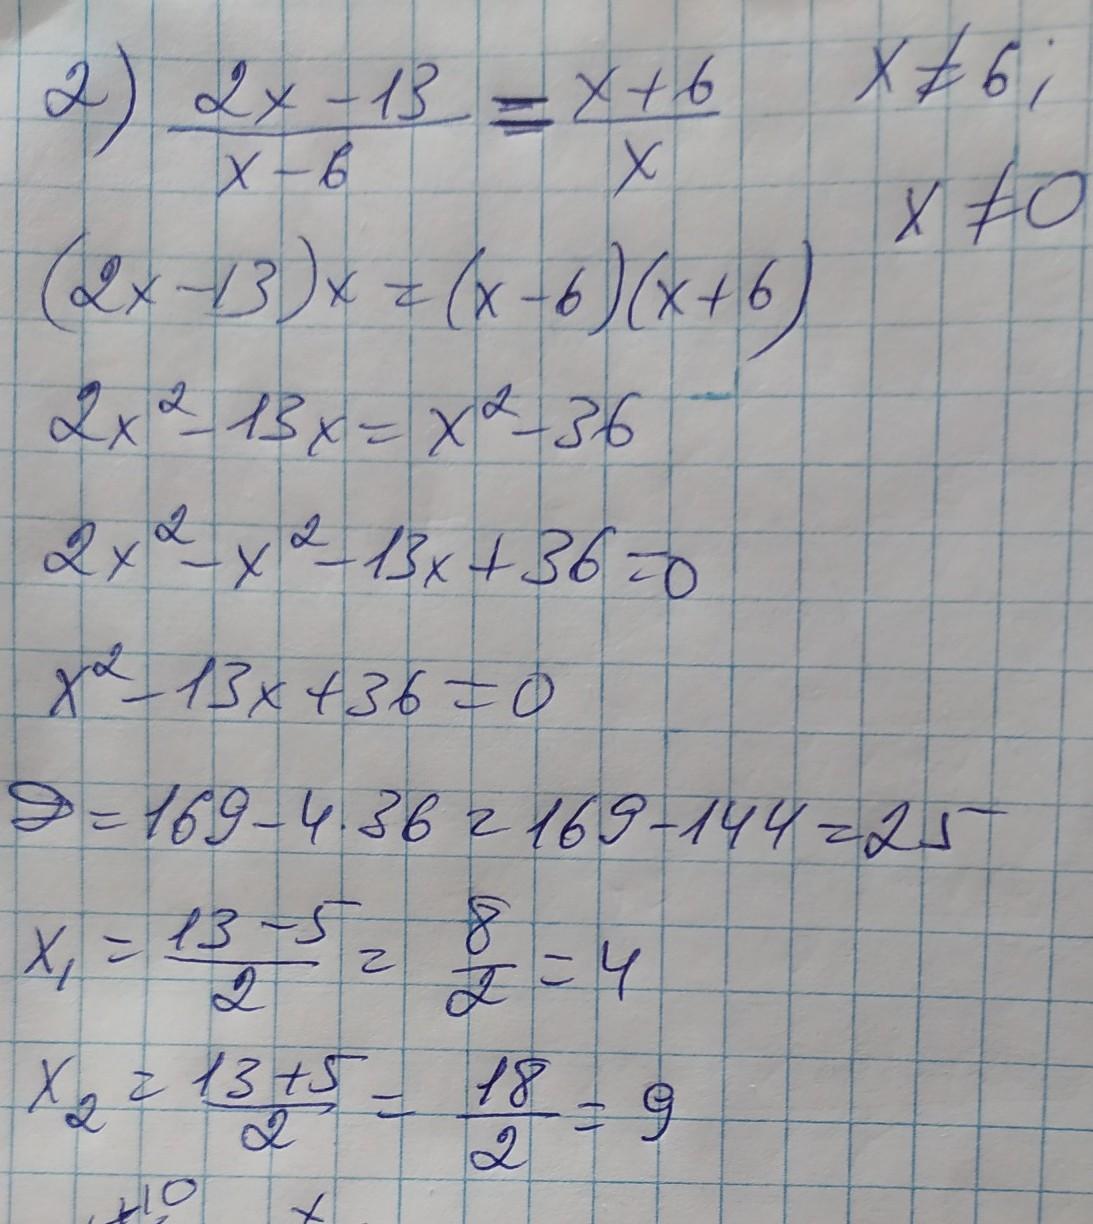 2) (2x - 13)/(x - 6) = (x + 6)/x x ≠ 6;
x ≠ 0
(2x - 13)x = (x - 6)(x + 6)
2x² - 13x = x² - 36
2x² - x² - 13x + 36 = 0
x² - 13x + 36 = 0
D = 169 - 4 · 36 = 169 - 144 = 25
x₁ = (13 - 5)/2 = 8/2 = 4
x₂ = (13 + 5)/2 = 18/2 = 9